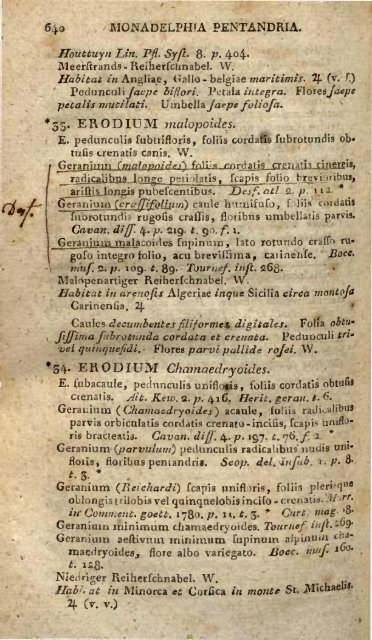 640 MONADELPHIA PENTANDRIA.
Houttuyn Lin. Pfl. Syst. 8. p. 404.
Meerstrands-Reiherschnabel. W.
Habitat in Angliae, Gallo-belgiae maritimis. ♃ (v. s.)
Pedunculi saepe biflori. Petala integra. Flores saepe
petalis mutilati. Umbella saepe foliosa.
*33. ERODIUM malopoides.
E. pedunculis subtrifloris, foliis cordatis subrotundis ob-
tusis crenatis canis. W.
Geranium (malopoides) foliis cordatis crenatis cinereis,
radicalibus longe periolatis, scapis folio brevioribus,
aristis longis pubescentibus. Desf. atl. 2. p. 112. *
Geranium (crassifolium) caule humifuso, foliis cordatis
subrotundis rugosis crassis, floribus umbellatis parvis.
Cavan. diss. 4. p. 219. t. 90. f. 1.
Geranium malacoides supinum, lato rotundo crasso ru-
goso integro folio, acu brevissima, carinense. Bocc.
mus. 2. p. 109. t. 89. Tournef. inst. 268.
Malopenartiger Reiherschnabel. W.
Habitat in arenosis Algeriae inque Sicilia circa montosa
Carinensia. ♃
Caules decumbentes filiformes digitales. Folia obtu-
sissima subrotunda cordata et crenata. Pedunculi tri-
vel quinquefidi. Flores parvi pallide rosei. W.
*34. ERODIUM Chamaedryoides.
E. subacaule, pedunculis unifloris, foliis cordatis obtusis
crenatis. Ait. Kew. 2. p. 416. Herit. geran. t. 6.
Geranium (Chamaedryoides) acaule, foliis radicalibus
parvis orbiculatis cordatis crenato-incisis, scapis uniflo-
ris bracteatis. Cavan. diss. 4. p. 197. t. 76. f. 2. *
Geranium (parvulum) pedunculis radicalibus nudis uni-
floris, floribus pentandris. Scop. del. insub. 1. p. 8.
t. 3. *
Geranium (Reichardi) scapis unifloris, foliis plerisque
oblongis trilobis vel quinquelobis inciso-crenatis. Murr.
in Comment. goett. 1780. p. 11. t. 3. * Curt. mag. 18.
Geranium minimum chamaedryoides. Tournef. inst. 269.
Geranium aestivum minimum supinum alpinum cha-
maedryoides, flore albo variegato. Bocc. mus. 160.
t. 128.
Niedriger Reiherschnabel. W.
Habitat in Minorca et Corsica in monte St. Michaelis.
♃ (v. v.)